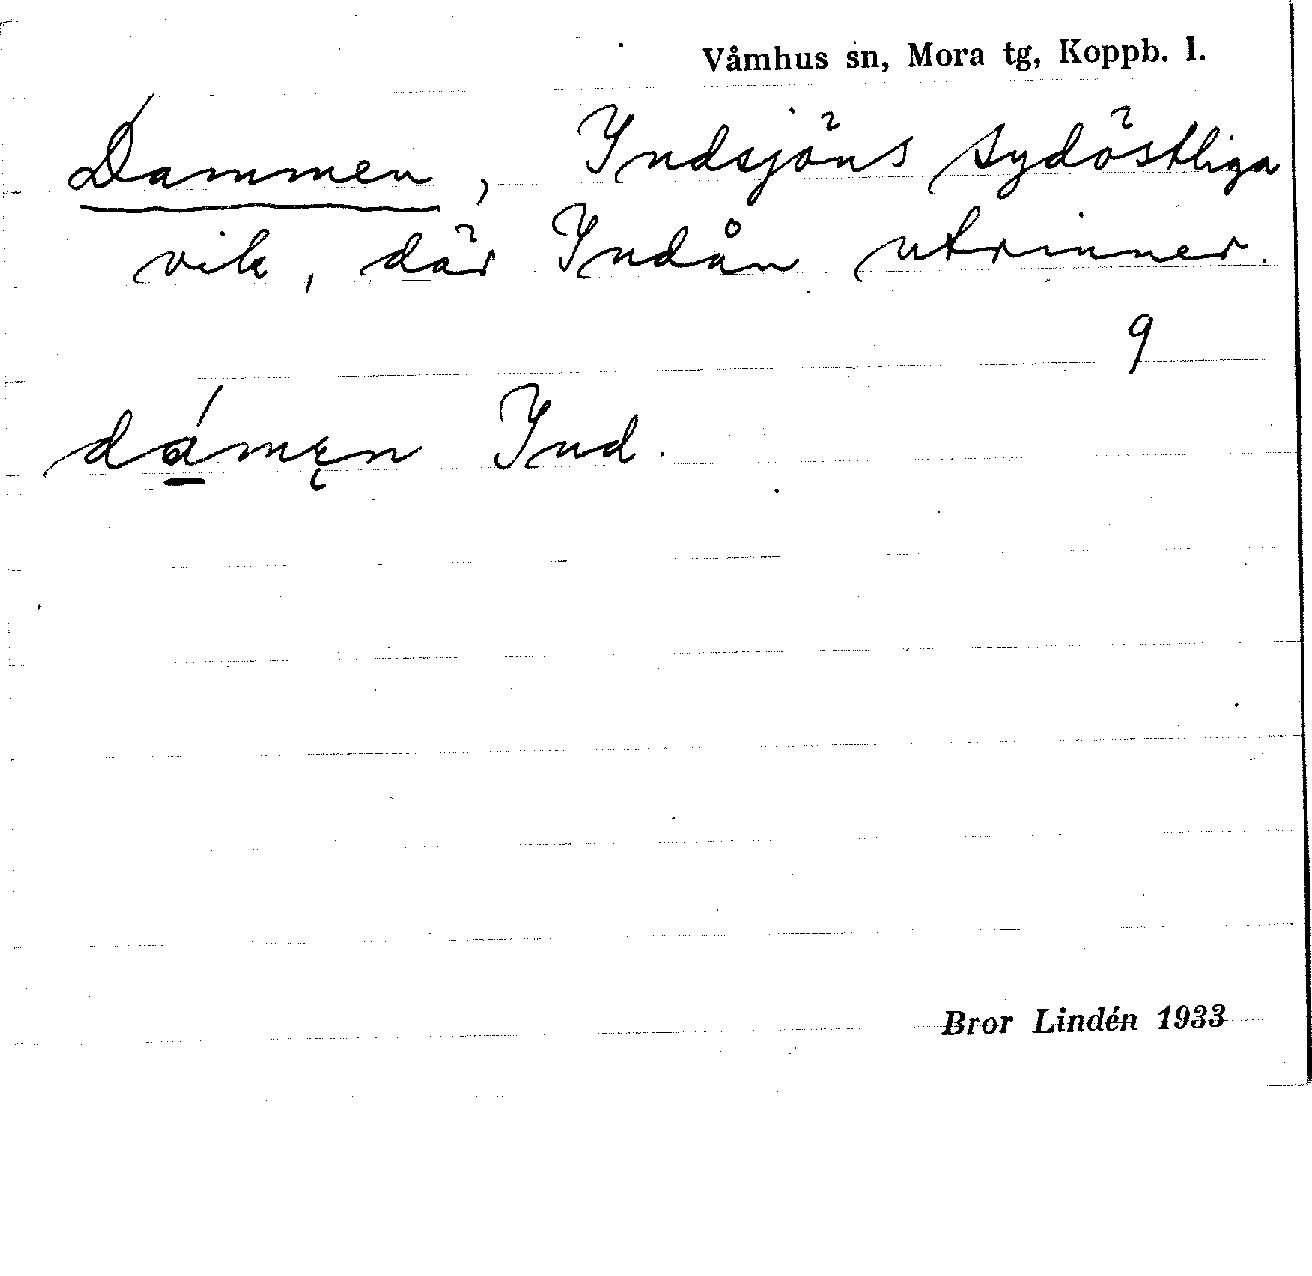 Våmhus sn, Mora tg, Koppb. l.
Dammen, Yndsjöns sydöstliga
vik, där Yndån utrinner.
9
dámęn Ynd.
Bror Lindén 1933